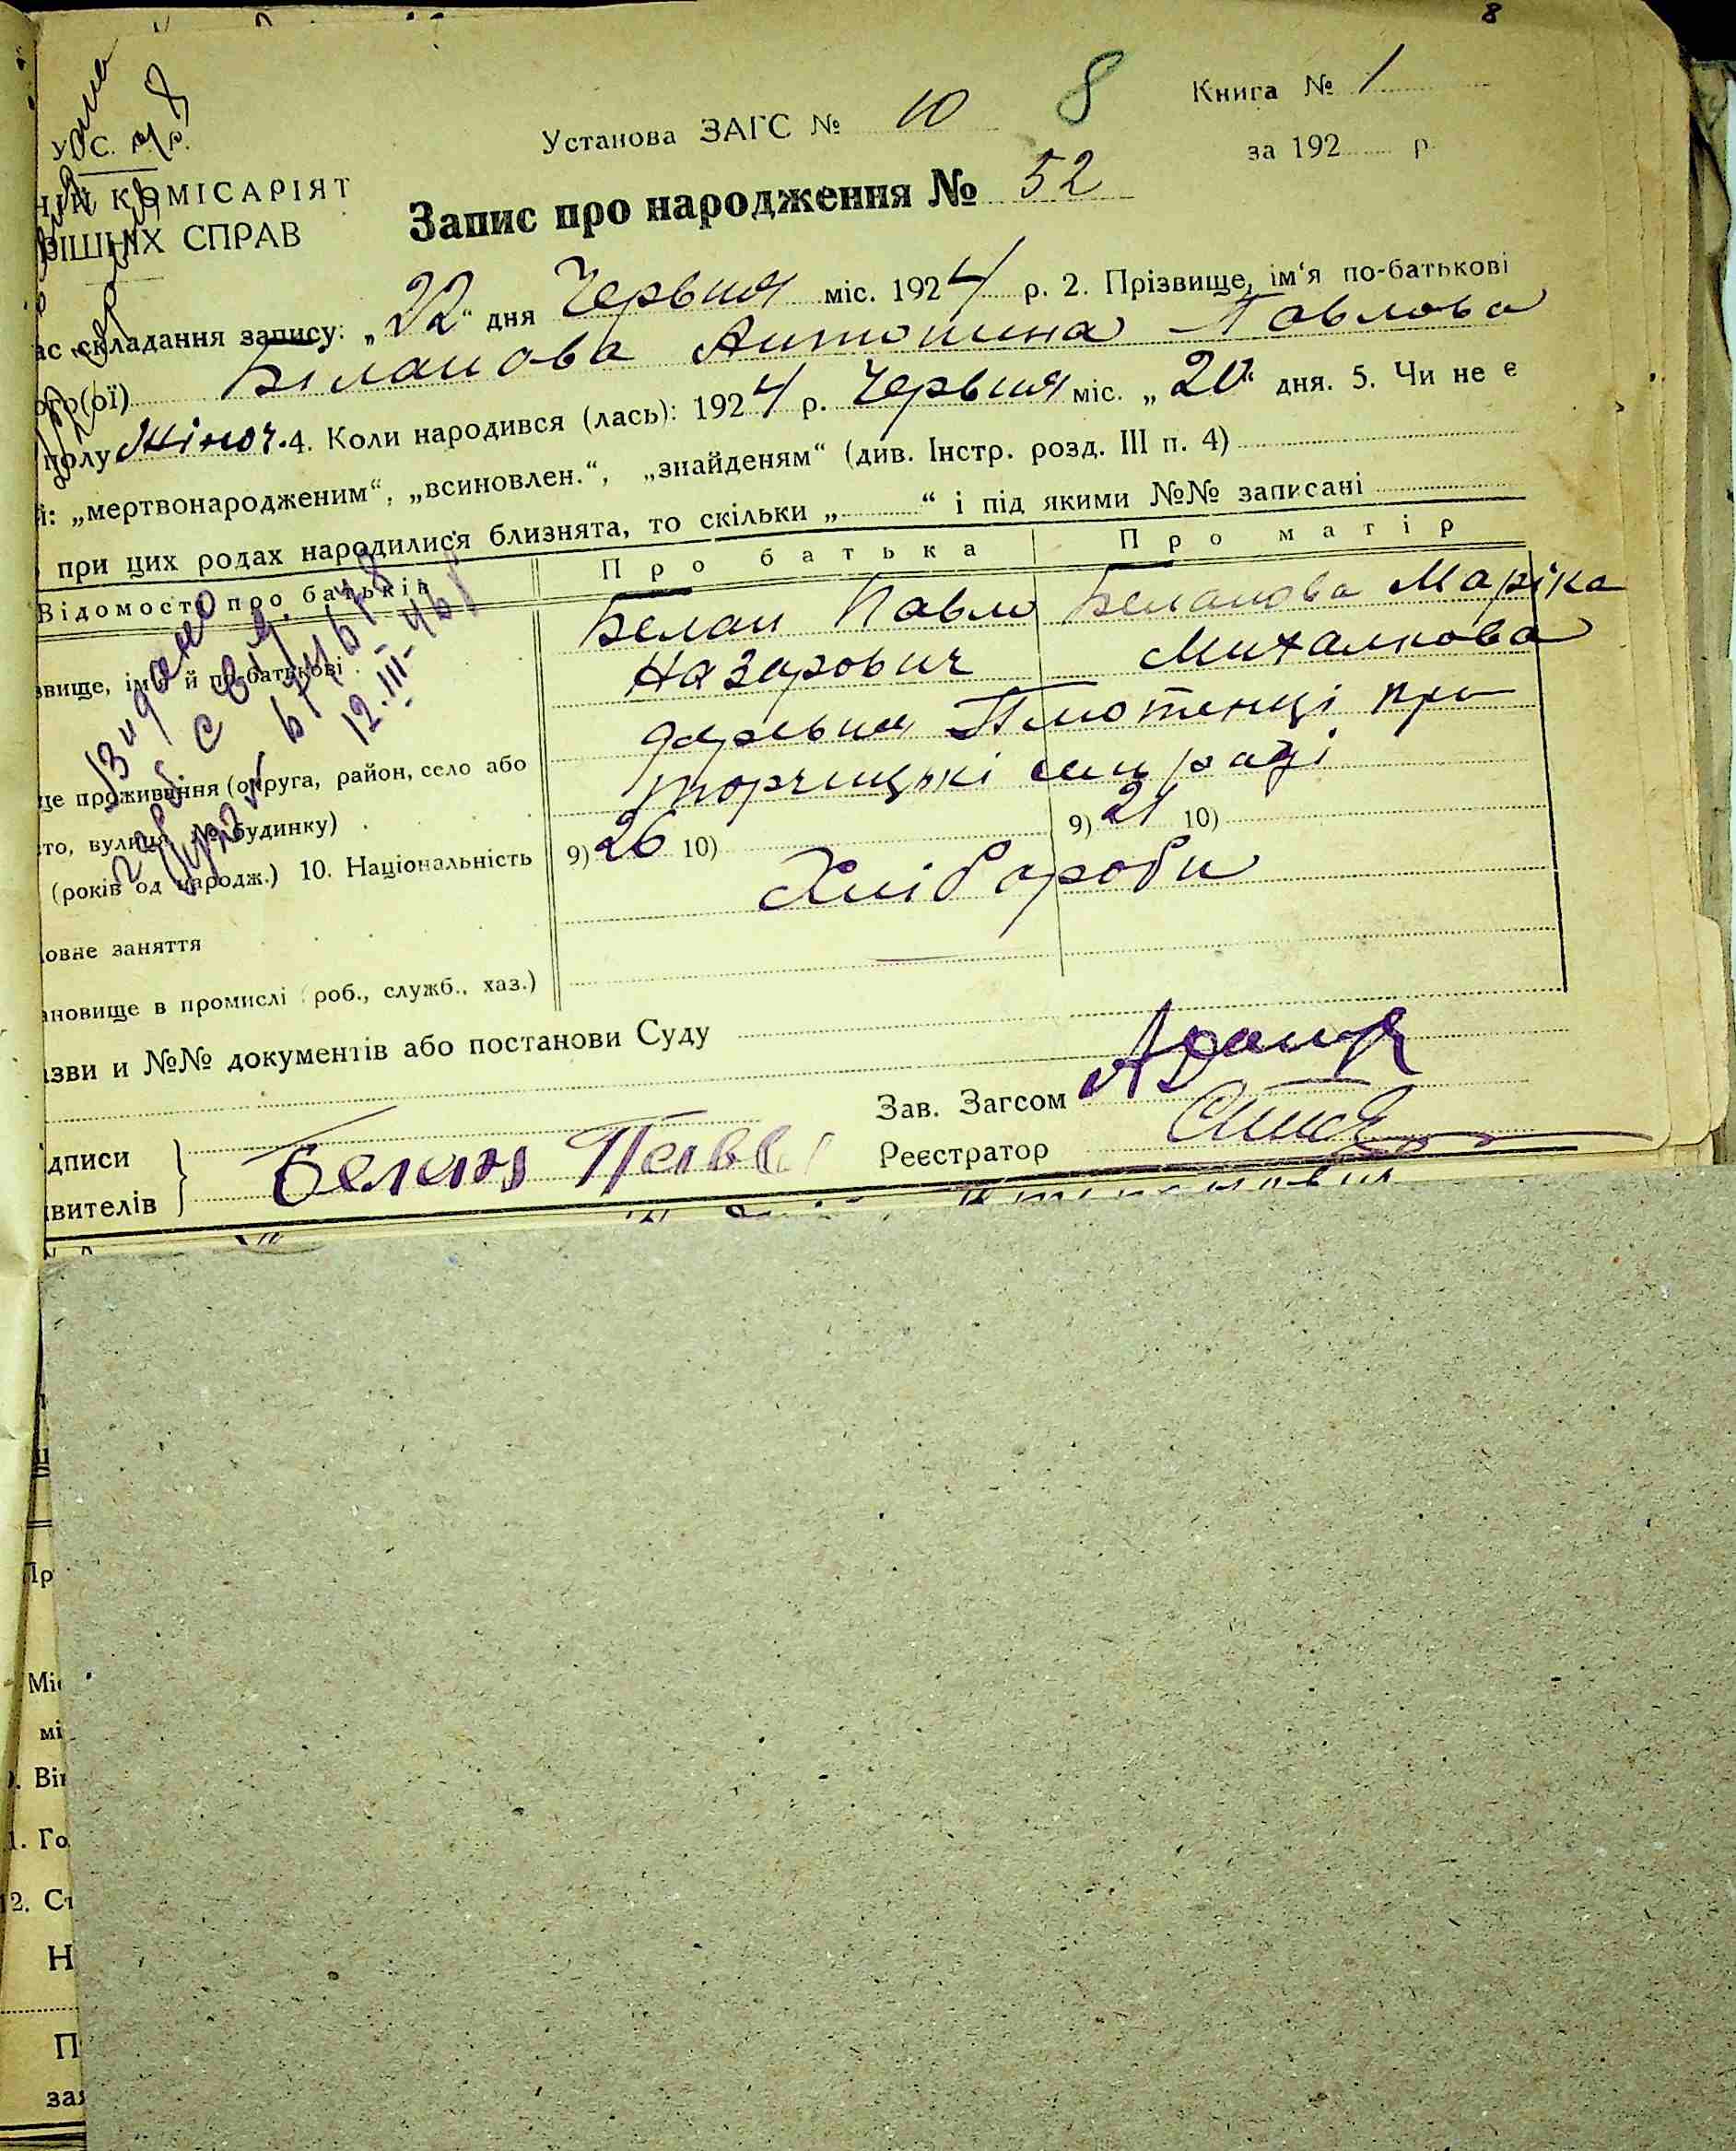 8
Установа ЗАГС № 10
8
Книга № 1
за 192 р.
У. С. Р. Р.
НІЙ КОМІСАРІЯТ
РІШНІХ СПРАВ
Запис про народження № 52
ас складання запису: „22“ дня Червня міс. 1924 р. 2. Прізвище, ім‘я по-батькові
ого(ої) Біланова Антонина Павлова
полу Жіноч. 4. Коли народився (лась): 1924 р. Червня міс. „20“ дня. 5. Чи не є
й: „мертвонародженим“, „всиновлен.“, „знайденям“ (див. Інстр. розд. III п. 4)
при цих родах народилися близнята, то скільки „ “ і під якими №№ записані
Відомости про батьків
Про батька
Про матір
звище, ім‘я й по-батькові
Белан Павло
Назарович
Беланова Маріка
Михалкова
це проживання (округа, район, село або
то, вулиця, № будинку)
деревня Плютенці при
торчицькі сил раді
(років од народж.) 10. Національність
9) 26 10)
9) 21 10)
овне заняття
Хлібороби
ановище в промислі (роб., служб., хаз.)
азви и №№ документів або постанови Суду
Зав. Загсом
Реєстратор
дписи
явителів
Белан Павло
Видано
12.III-
Пр
Міс
мі
). Вік
1. Го
12. Ст
Н
П
зая